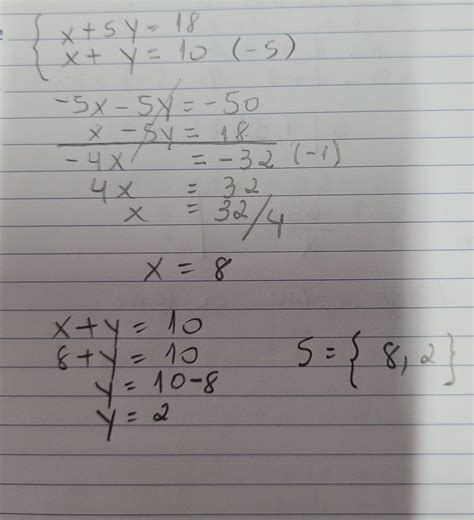 x + 5y = 18
x + y = 10 (-5)
-5x - 5y = -50
x - 5y = 18
-4x = -32 (-1)
4x = 32
x = 32/4
x = 8
x + y = 10
8 + y = 10
y = 10 - 8
y = 2
S = { 8, 2 }